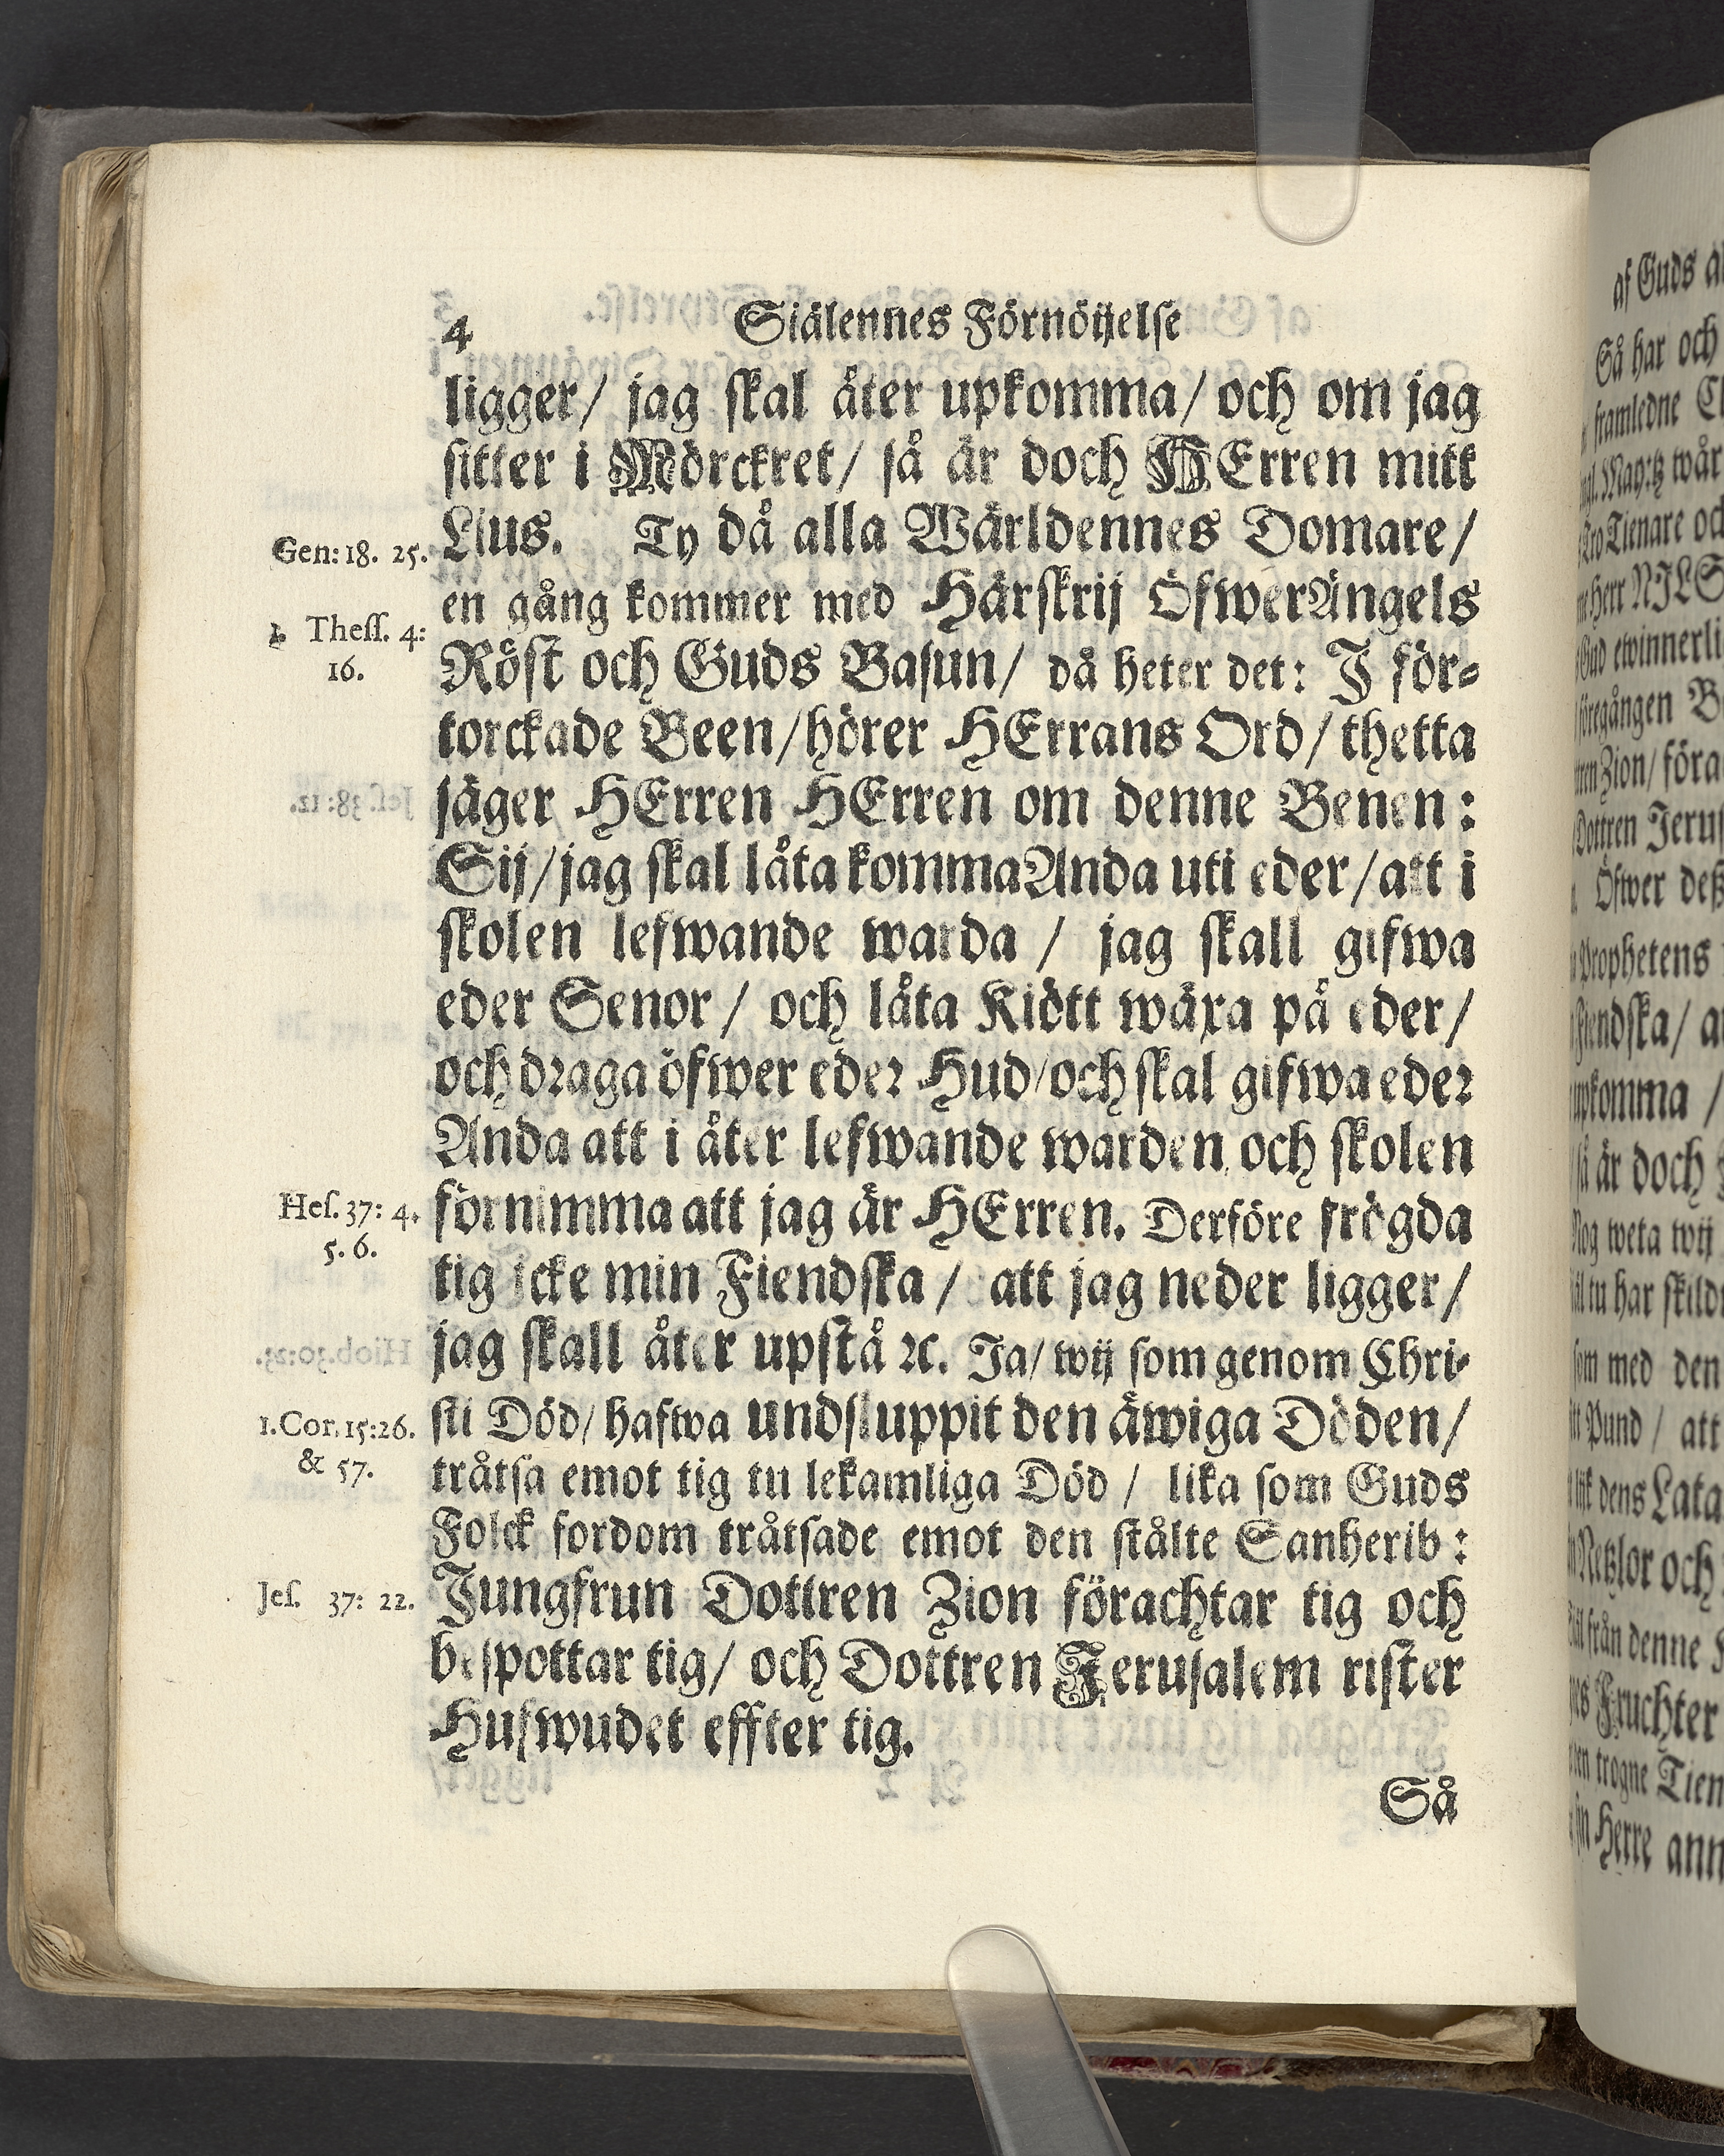 4 Siälennes Förnöÿelse
ligger/ jag skal åter upkomma/ och om jag
sitter i Mörckret/ så är doch HErren mitt
Gen: 18. 25. Lius. Ty då alla Wärldennes Domare/
en gång kommer med Härskrij ÖfwerÄngels
1. Thess. 4:
16. Röst och Guds Basun/ då heter det: J för-
torckade Been/ hörer HErrans Ord/ thetta
säger HErren HErren om denne Benen:
Sij/ jag skal låta komma Anda uti eder/ att i
skolen lefwande warda / jag skall gifwa
eder Senor / och låta Kiött wäxa på eder/
och draga öfwer eder Hud/ och skal gifwa eder
Anda att i åter lefwande warden, och skolen
Hes. 37: 4.
5. 6. förnimma att jag är HErren. Derföre frögda
tig icke min Fiendska / att jag neder ligger/
jag skall åter upstå ꝛc. Ja/ wij som genom Chri-
1. Cor. 15: 26.
& 57. sti Död/ hafwa undsluppit den äwiga Döden/
tråtsa emot tig tu lekamliga Död / lika som Guds
Folck fordom tråtsade emot den stålte Sanherib:
Jes. 37: 22. Jungfrun Dottren Zion förachtar tig och
bespottar tig/ och Dottren Jerusalem rister
Hufwudet effter tig.
Så
af Guds
Så har och
framledne
wår
Tienare
Herr NILS
ewinnerli
föregången
Zion/ föra
Dottren Jerus
Öfwer
Prophetens
Fiendska/
upkomma /
så är doch
Nog weta wij
tu har skild
som med den
Pund / att
dens Lata
och
från denne
Fruchter
trogne Tien
Herre ann